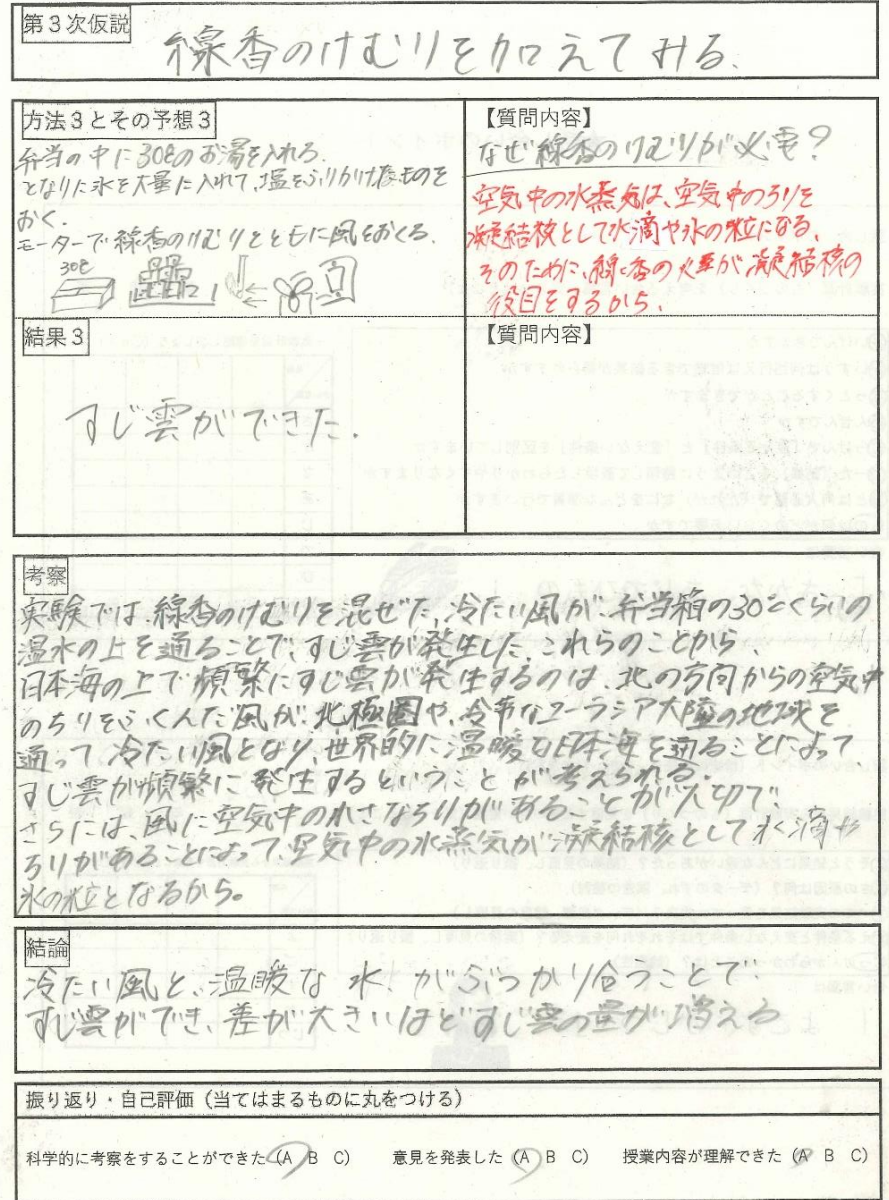 第3次仮説
線香のけむりを加えてみる.
方法3とその予想3
弁当の中に30℃のお湯を入れる.
となりに氷を大量に入れて,塩をふりかけたものを
おく.
モーターで線香のけむりとともに風をおくる.
30℃
【質問内容】
なぜ線香のけむりが必要?
空気中の水蒸気は、空気中のちりを
凝結核として水滴や氷の粒になる、
そのために、線香の火薬が凝結核の
役目をするから.
結果3
すじ雲ができた.
【質問内容】
考察
実験では、線香のけむりを混ぜた、冷たい風が、弁当箱の30℃くらいの
温水の上を通ることで、すじ雲が発生した これらのことから
日本海の上で頻繁にすじ雲が発生するのは、北の方向からの空気中
のちりをふくんだ風が、北極圏や、冷帯なユーラシア大陸の地域を
通って、冷たい風となり、世界的に温暖な日本海を通ることによって
すじ雲が頻繁に発生するということが考えられる.
さらには、風に空気中の小さなちりがあることが大切で
ちりがあることによって、空気中の水蒸気が凝結核として水滴や
氷の粒となるから。
結論
冷たい風と、温暖な水がぶつかり合うことで、
すじ雲ができ、差が大きいほどすじ雲の量が増える
振り返り・自己評価(当てはまるものに丸をつける)
科学的に考察をすることができた(A B C) 意見を発表した(A B C) 授業内容が理解できた(A B C)